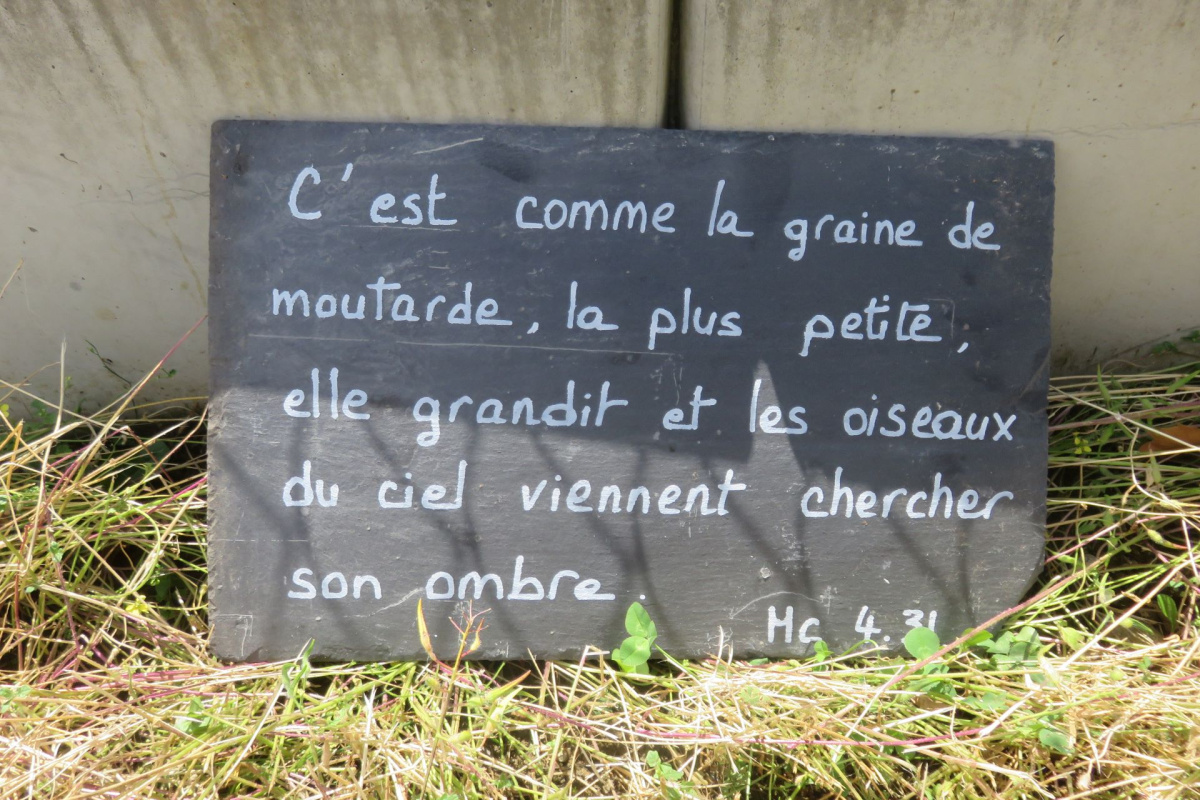 C'est comme la graine de
moutarde, la plus petite,
elle grandit et les oiseaux
du ciel viennent chercher
son ombre.
Mc 4.31